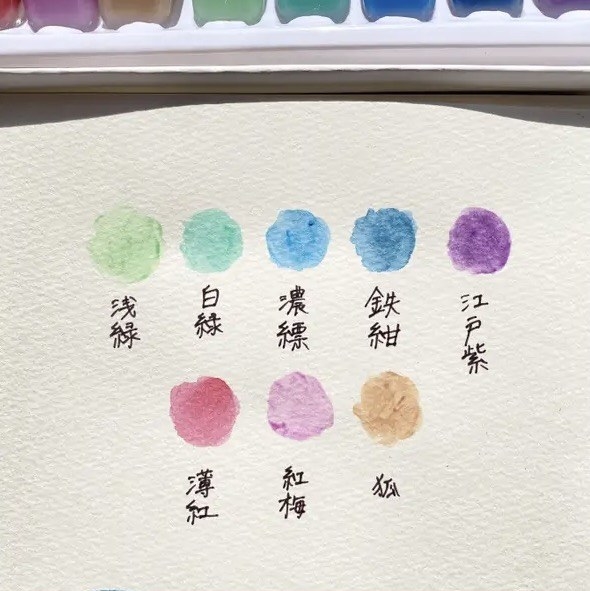 浅緑
白緑
濃縹
鉄紺
江戸紫
薄紅
紅梅
狐